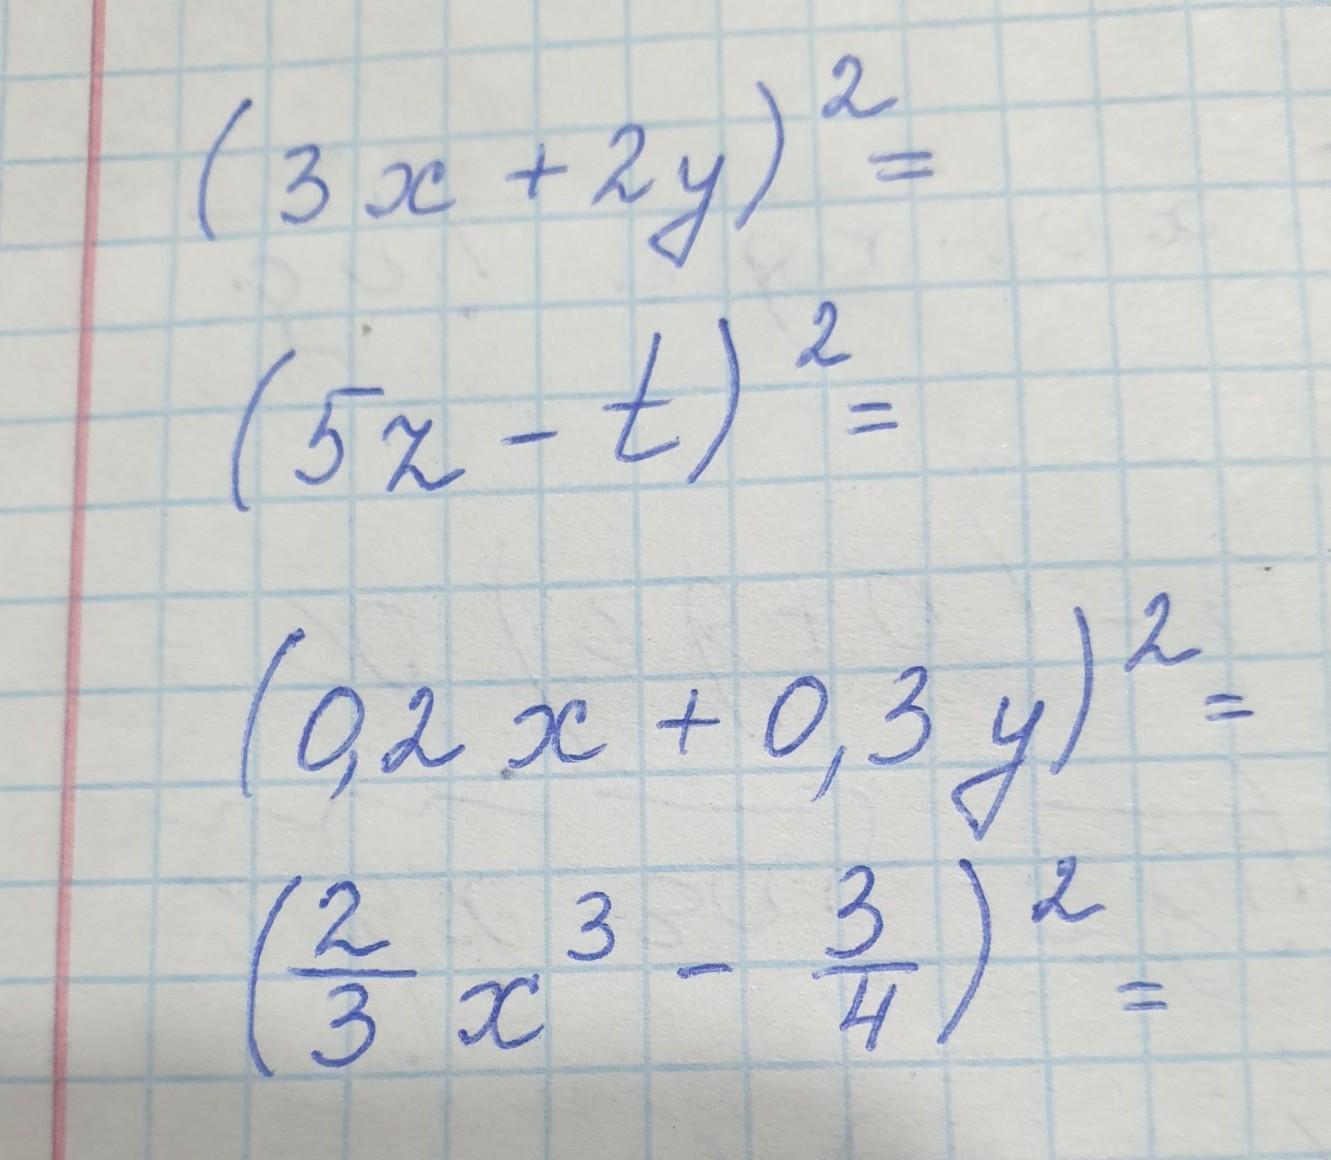 (3x + 2y)² =
(5z - t)² =
(0,2x + 0,3y)² =
(2/3 x³ - 3/4)² =